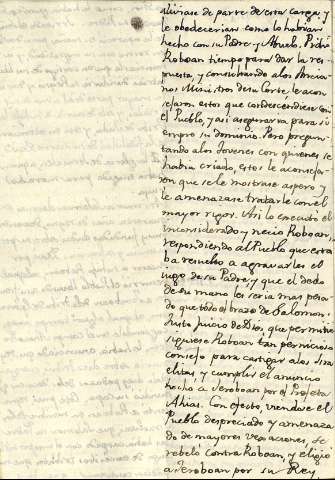 aliviase de parte de esta carga, y
le obedecerian como lo habian
hecho con su Padre y Abuelo. Pidió
Roboan tiempo para dar la res-
puesta, y consultando a los Ancia-
nos Ministros de su Corte, le acon-
sejaron estos que condescendiese con
el Pueblo, y asi aseguraria para si-
empre su dominio. Pero pregun-
tando a los Jovenes con quienes se
habia criado, estos le aconseja-
ron que se le mostrase aspero y
le amenazase tratarle con el
mayor rigor. Asi lo executó el
inconsiderado y necio Roboan,
respondiendo al Pueblo que esta-
ba resuelto a agravarles el
iugo de su Padre, y que el dedo
de su mano les seria mas pesa-
do que todo el brazo de Salomon.
Justo Juicio de Dios, que permitio
siguiese Roboan tan pernicioso
consejo para castigar a los Isra-
elitas, y cumplir el anuncio
hecho a Jeroboan por el Profeta
Ahias. Con efecto, viendose el
Pueblo despreciado y amenaza-
do de mayores vejaciones, se
rebelo contra Roboan, y eligio
a Jeroboan por su Rey,